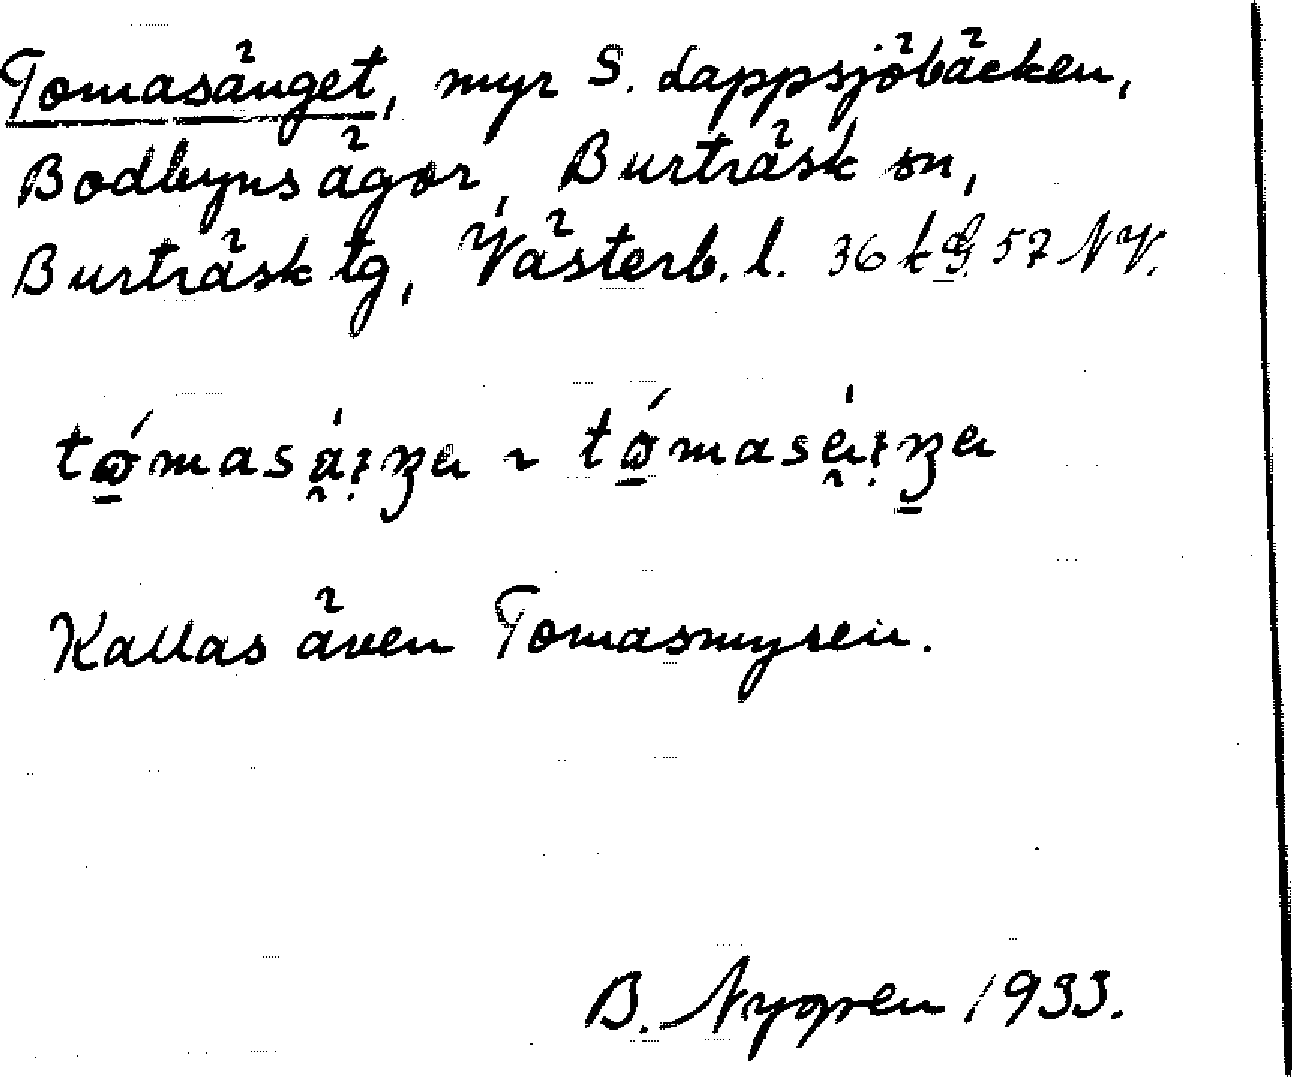 Tomasänget, myr S. Lappsjöbäcken,
Bodbyns ägor, Burträsk sn,
Burträsk tg, Västerb. l. 36 k G 57 NV.
Kallas även Tomasmyren.
B. Nygren 1933.